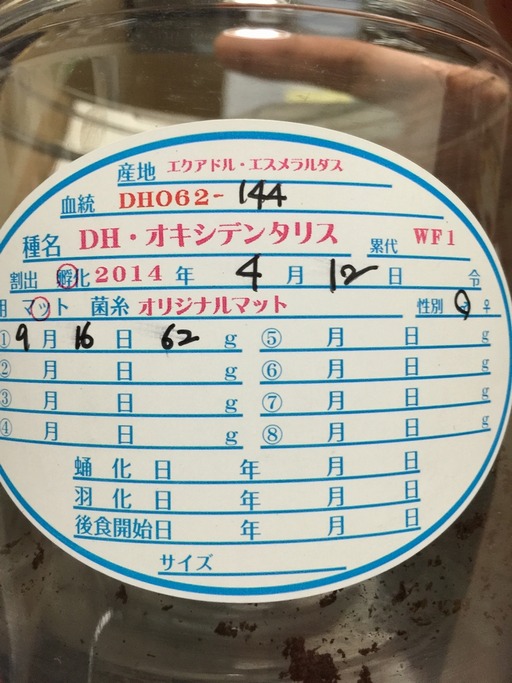 産地 エクアドル・エスメラルダス
血統 DHO62-144
種名 DH・オキシデンタリス 累代 WF1
割出 孵化 2014年 4月 12日 令
用 マット 菌糸 オリジナルマット 性別 ♀
① 9月 16日 62g ⑤ 月 日 g
② 月 日 g ⑥ 月 日 g
③ 月 日 g ⑦ 月 日 g
④ 月 日 g ⑧ 月 日 g
蛹化日 年 月 日
羽化日 年 月 日
後食開始日 年 月 日
サイズ